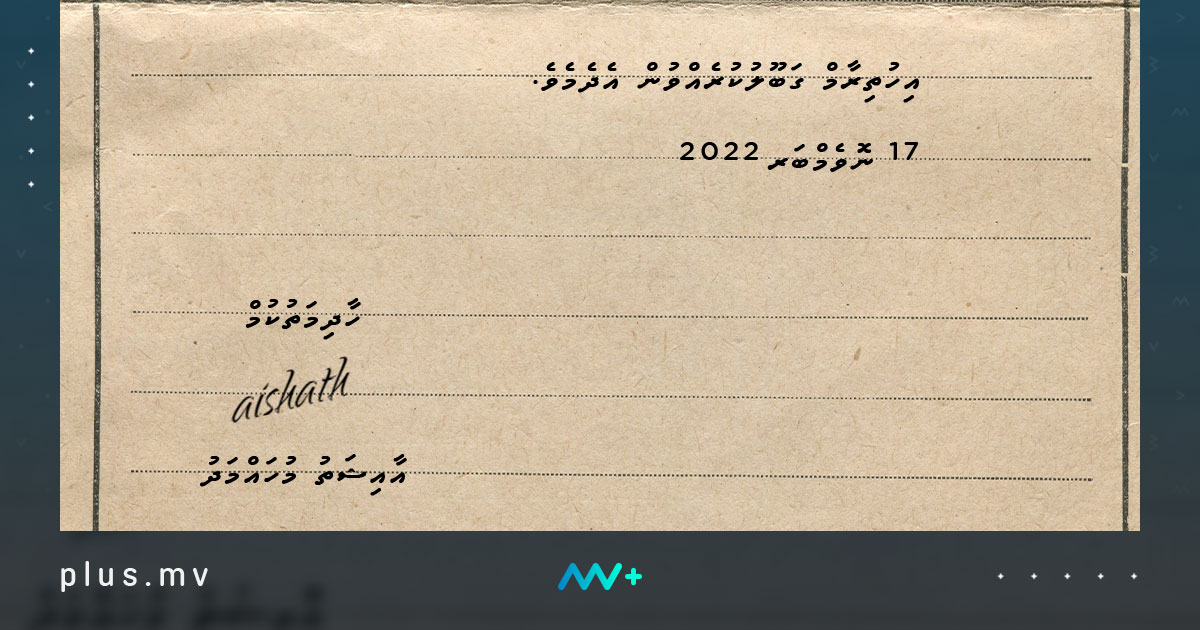 އިހުތިރާމް ގަބޫލުކުރެއްވުން އެދެމެވެ.
17 ނޮވެމްބަރ 2022
ހާދިމަތުކުމް
aishath
އާއިޝަތު މުހައްމަދު
plus.mv